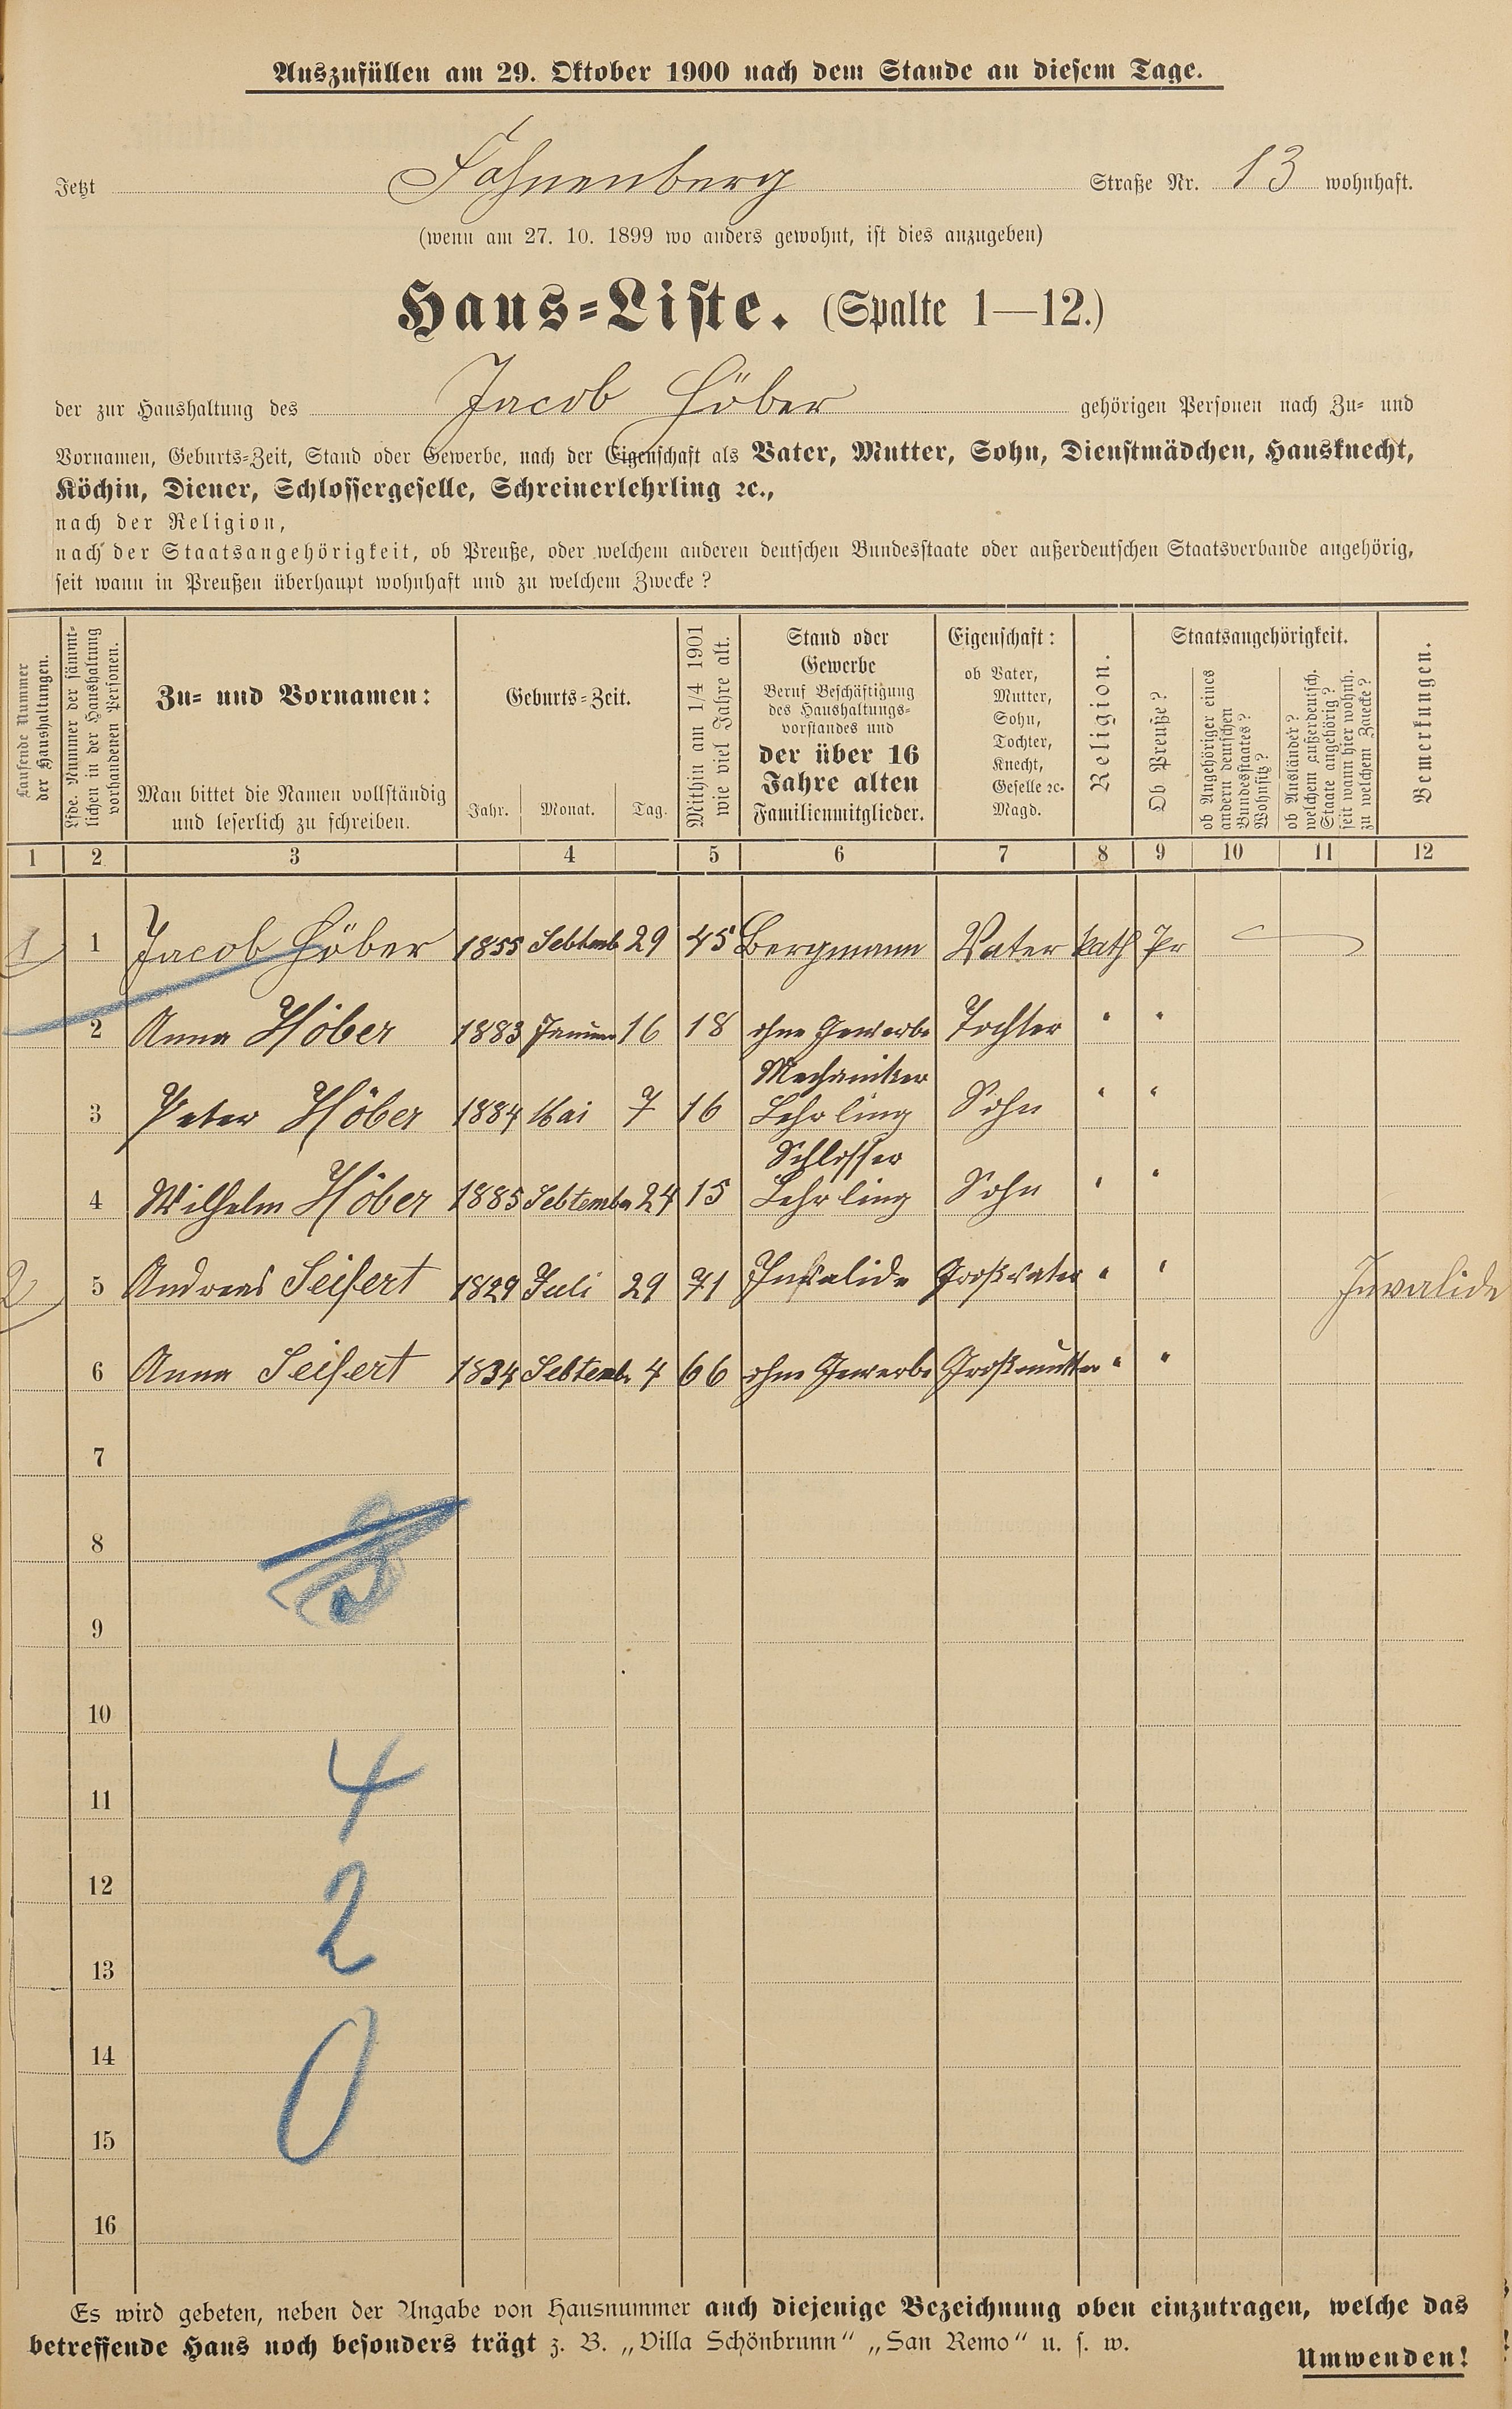 Auszufüllen am 29. Oktober 1900 nach dem Stande an diesem Tage.
Jetzt Fahnenberg Straße Nr. 13 wohnhaft.
(wenn am 27. 10. 1899 wo anders gewohnt, ist dies anzugeben)
Haus-Liste. (Spalte 1—12.)
der zur Haushaltung des Jacob Höber gehörigen Personen nach Zu- und
Vornamen, Geburts-Zeit, Stand oder Gewerbe, nach der Eigenschaft als Vater, Mutter, Sohn, Dienstmädchen, Hausknecht,
Köchin, Diener, Schlossergeselle, Schreinerlehrling ꝛc.,
nach der Religion,
nach der Staatsangehörigkeit, ob Preuße, oder welchem anderen deutschen Bundesstaate oder außerdeutschen Staatsverbande angehörig,
seit wann in Preußen überhaupt wohnhaft und zu welchem Zwecke?
Laufende Nummer
der Haushaltungen.
Lfde. Nummer der sämmt-
lichen in der Haushaltung
vorhandenen Personen.
Zu- und Vornamen:
Man bittet die Namen vollständig
und leserlich zu schreiben.
Geburts-Zeit.
Jahr. Monat. Tag.
Mithin am 1/4 1901
wie viel Jahre alt.
Stand oder
Gewerbe
Beruf Beschäftigung
des Haushaltungs-
vorstandes und
der über 16
Jahre alten
Familienmitglieder.
Eigenschaft:
ob Vater,
Mutter,
Sohn,
Tochter,
Knecht,
Geselle ꝛc.
Magd.
Religion.
Staatsangehörigkeit.
Ob Preuße?
ob Angehöriger eines
andern deutschen
Bundesstaates?
Wohnsitz?
ob Ausländer?
welchem außerdeutsch.
Staate angehörig?
seit wann hier wohnh.
zu welchem Zwecke?
Bemerkungen.
1 2 3 4 5 6 7 8 9 10 11 12
1 1 Jacob Höber 1855 Septemb 29 45 Bergmann Vater kath Pr
2 Anna Höber 1883 Januar 16 18 ohne Gewerbe Tochter " "
3 Peter Höber 1884 Mai 7 16 Mechaniker Lehrling Sohn " "
4 Wilhelm Höber 1885 September 24 15 Schlosser Lehrling Sohn " "
2 5 Andreas Seifert 1829 Juli 29 71 Invalide Großvater " " Invalide
6 Anna Seifert 1834 Septemb. 4 66 ohne Gewerbe Großmutter " "
7
8
9
10
11 4
12 2
13
14 0
15
16
Es wird gebeten, neben der Angabe von Hausnummer auch diejenige Bezeichnung oben einzutragen, welche das
betreffende Haus noch besonders trägt z. B. „Villa Schönbrunn“ „San Remo“ u. s. w.
Umwenden!